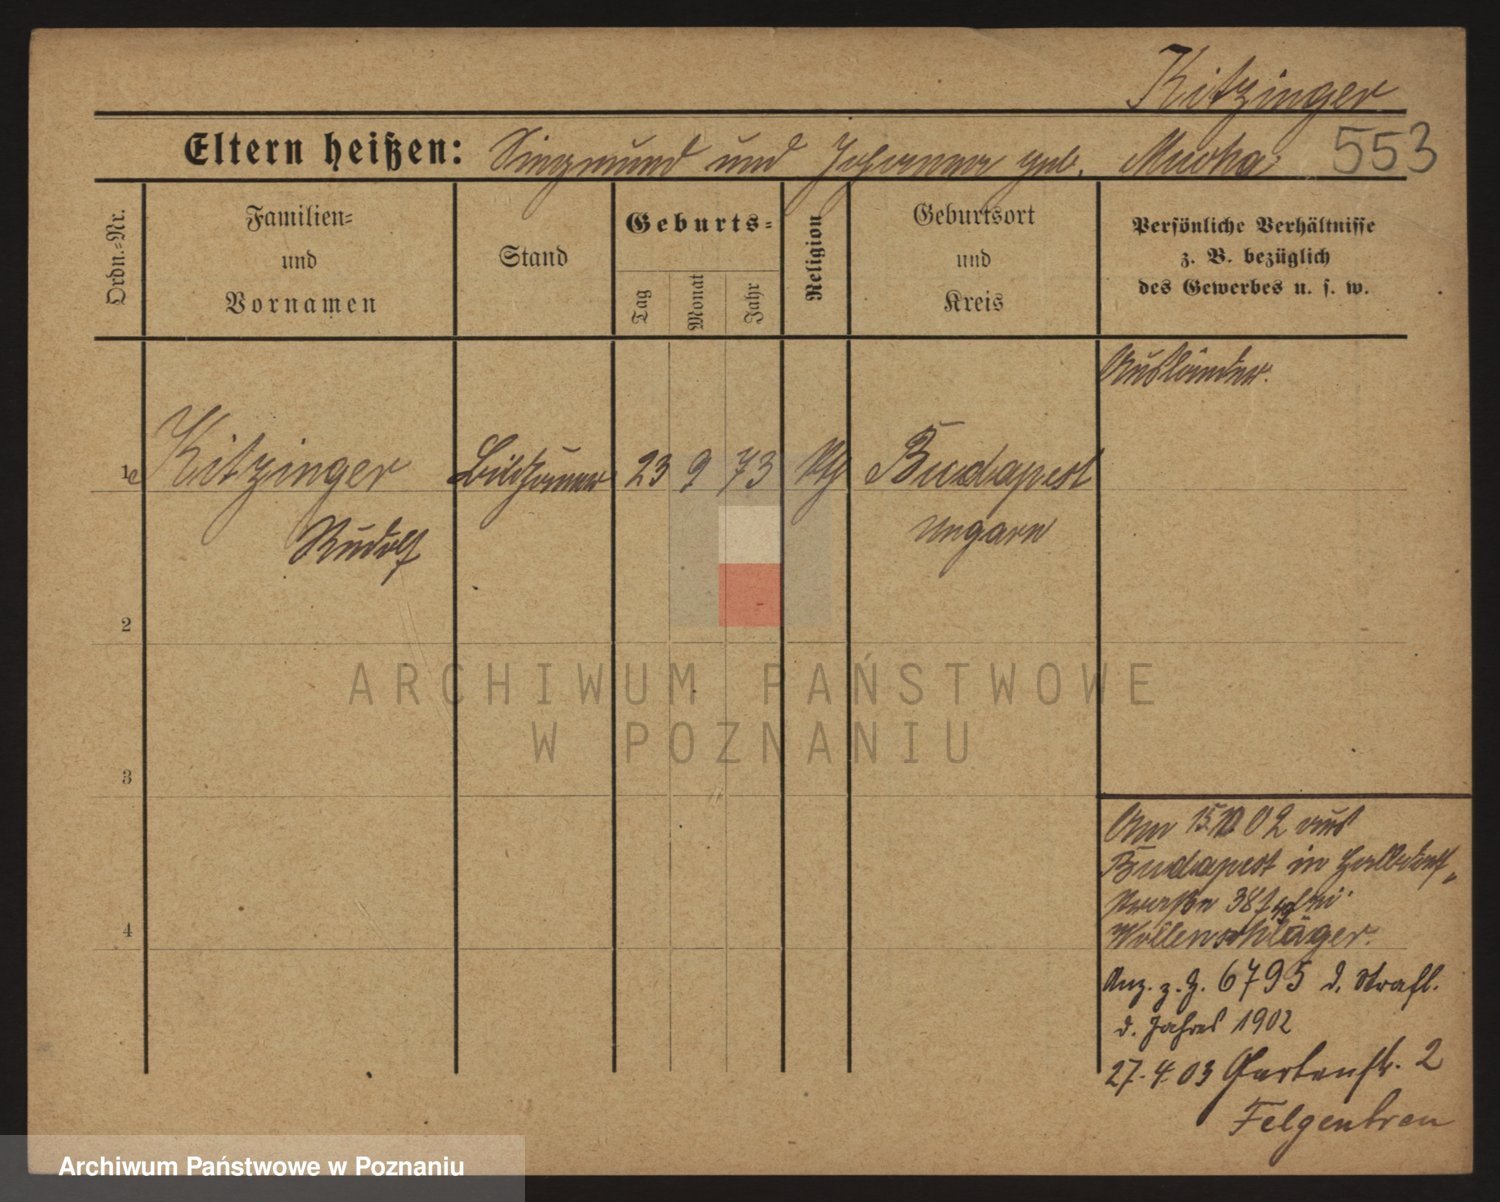 Kitzinger
Eltern heißen: Siegmund und geb. Mucha
553
Ordn.=Nr.
Familien=
und
Vornamen
Stand
Geburts=
Tag
Monat
Jahr
Religion
Geburtsort
und
Kreis
Persönliche Verhältnisse
z. B. bezüglich
des Gewerbes u. s. w.
Ausländer.
1 Kitzinger Bildhauer 23 9 73 Budapest
Rudolf Ungarn
2
3
4
ARCHIWUM PAŃSTWOWE
W POZNANIU
Am 02 aus
Budapest in
straße 38 bei
Wollenschläger.
Anz. z. Z. 6795 d. Strafl.
d. Jahres 1902
27.4.03 Gartenstr. 2
Felgentreu
Archiwum Państwowe w Poznaniu